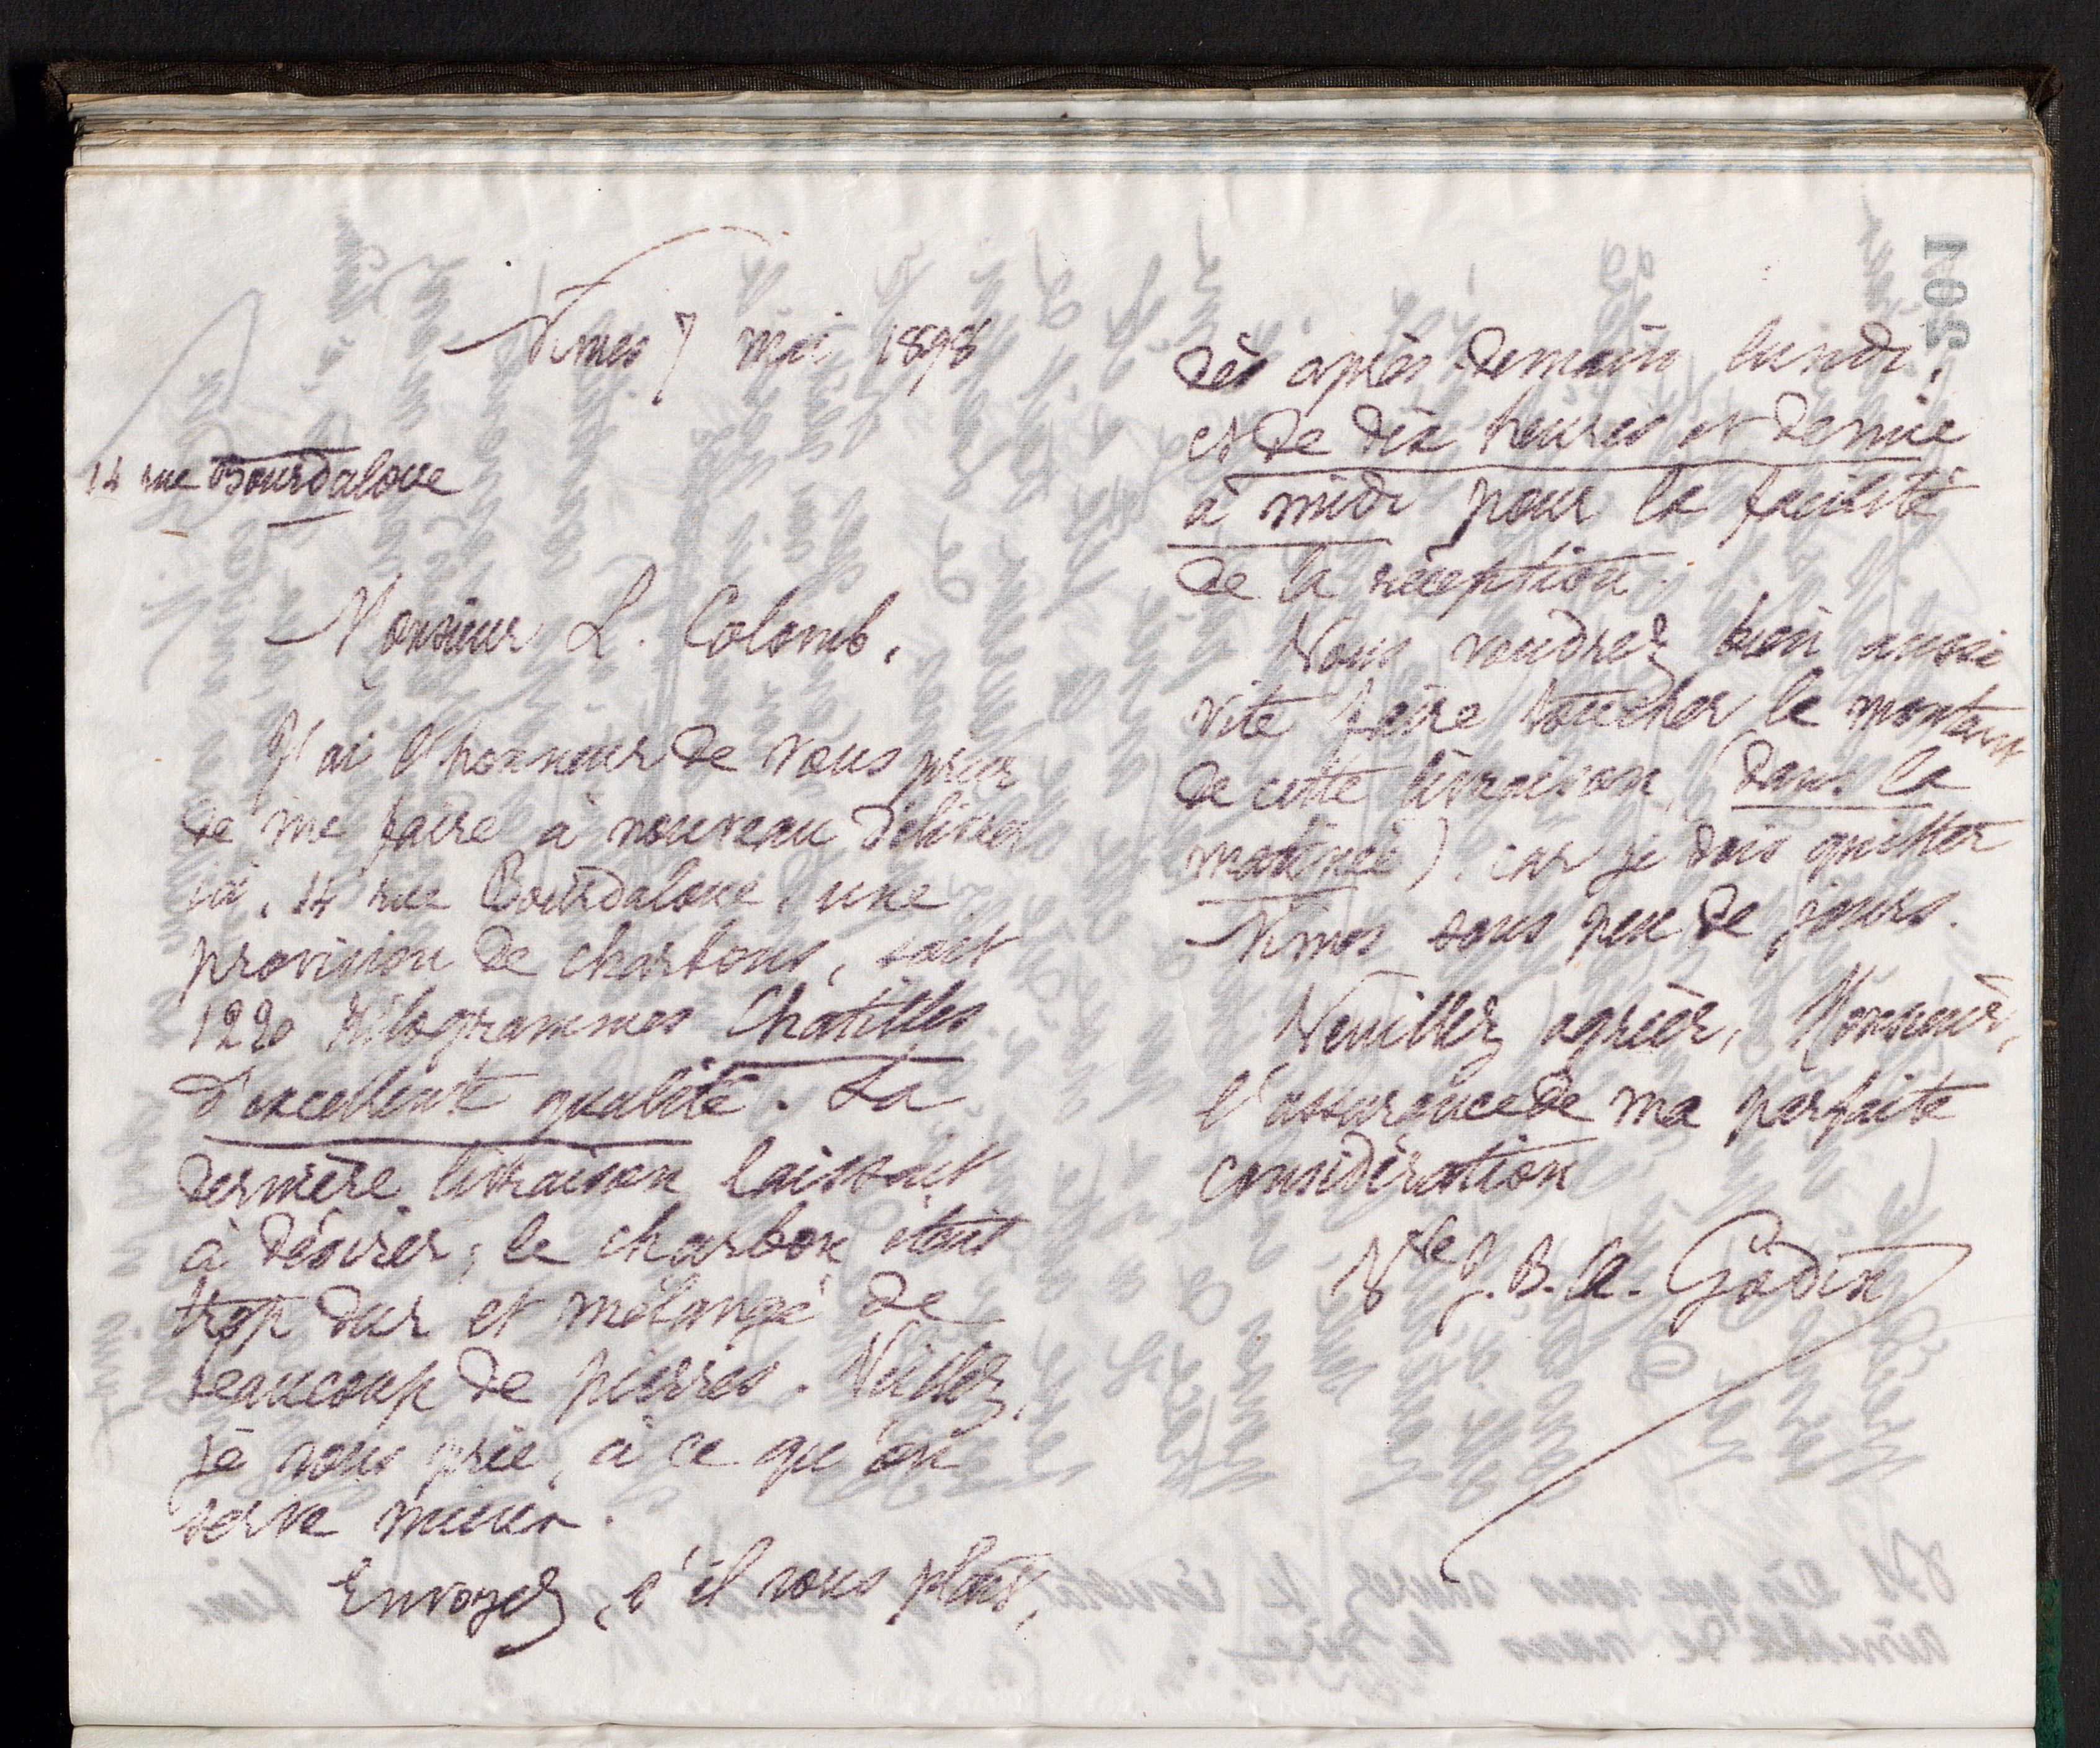 501
Nîmes 7 mai 1898
14 rue Bourdaloue
Monsieur L. Colomb,
J'ai l'honneur de vous prier
de me faire à nouveau délivrer
ici, 14 rue Bourdaloue, une
provision de charbons, soit
1220 kilogrammes Chatilles
d'excellente qualité. La
dernière livraison laissait
à désirer, le charbon était
trop dur et mélangé de
beaucoup de pierres. Veillez,
je vous prie, à ce qu'on
serve mieux.
Envoyez, s'il vous plaît,
dès après-demain lundi,
et de dix heures et demie
à midi pour la facilité
de la réception.
Vous voudrez bien aussi
vite faire toucher le montant
de cette livraison, (dans la
matinée), car je dois quitter
Nîmes sous peu de jours.
Veuillez agréer, Monsieur,
l'assurance de ma parfaite
considération
Vve J. B. A. Godin